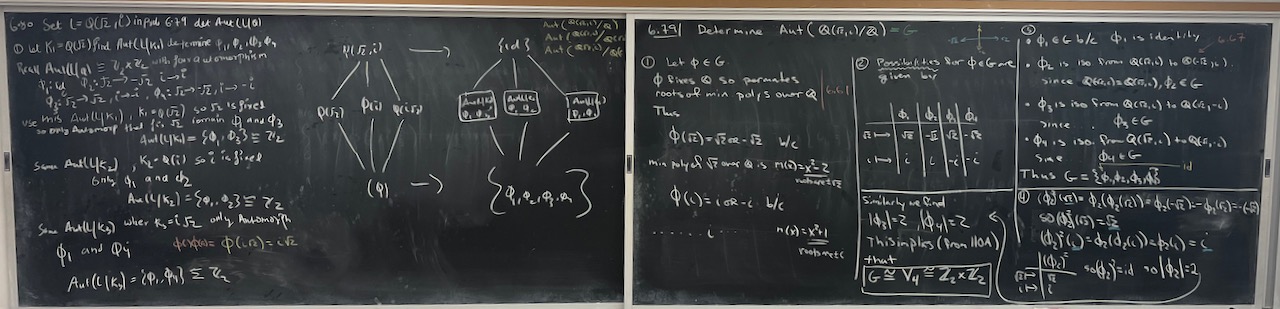 6.80 Set L = Q(√2, i) in prob 6.79 det Aut(L/Q)
① Let K₁ = Q(√2) find Aut(L/K₁) determine φ₁, φ₂, φ₃, φ₄
Recall Aut(L/Q) ≅ Z₂ × Z₂ with four automorphism
φ₁: id φ₂: √2 → -√2 i → i
φ₃: √2 → √2, i → -i φ₄: √2 → -√2, i → -i
use this Aut(L/K₁), K₁ = Q(√2) so √2 is fixed
so only Automorp that fix √2 remain φ₁ and φ₃
Aut(L/K₁) = {φ₁, φ₃} ≅ Z₂
Same Aut(L/K₂), K₂ = Q(i) so i is fixed
Only φ₁ and φ₂
Aut(L/K₂) = {φ₁, φ₂} ≅ Z₂
Same Aut(L/K₃) where K₃ = i√2 only Automorph
φ₁ and φ₄ φ(i√2) = i√2
Aut(L/K₃) = {φ₁, φ₄} ≅ Z₂
Q(√2, i) → {id}
Q(√2) Q(i) Q(i√2)
Aut(L/K₁) φ₁, φ₃
Aut(L/K₂) φ₁, φ₂
Aut(L/K₃) φ₁, φ₄
(Q) → {φ₁, φ₂, φ₃, φ₄}
Aut(Q(√2, i)/Q)
Aut(Q(√2, i)/
Aut(Q(√2, i)/
6.79 Determine Aut(Q(√2, i)/Q) = G
① Let φ ∈ G.
φ fixes Q so permutes
roots of min polys over Q
Thus
φ(√2) = √2 or -√2 b/c
min poly of √2 over Q is m(x) = x² - 2
roots are ±√2
φ(i) = i or -i b/c
...... i ...... n(x) = x² + 1
roots are ± i
② Possibilities for φ ∈ G are
given by
φ₁ φ₂ φ₃ φ₄
√2 ↦ √2 -√2 √2 -√2
i ↦ i i -i -i
③
• φ₁ ∈ G b/c φ₁ is identity
6.67
• φ₂ is iso from Q(√2, i) to Q(-√2, i)
since Q(√2, i) = Q(-√2, i), φ₂ ∈ G
• φ₃ is iso from Q(√2, i) to Q(√2, -i)
since .... φ₃ ∈ G
• φ₄ is iso. from Q(√2, i) to Q(-√2, -i)
Since φ₄ ∈ G
id
Thus G = {φ₁, φ₂, φ₃, φ₄}
④ (φ₂)²(√2) = φ₂(φ₂(√2)) = φ₂(-√2) = -φ₂(√2) = -(-√2)
so (φ₂)²(√2) = √2
(φ₂)²(i) = φ₂(φ₂(i)) = φ₂(i) = i
(φ₂)²
√2 ↦ √2
i ↦ i
so (φ₂)² = id so |φ₂| = 2
Similarly we find
|φ₃| = 2 |φ₄| = 2
This implies (from 110A)
that
G ≅ V₄ ≅ Z₂ × Z₂